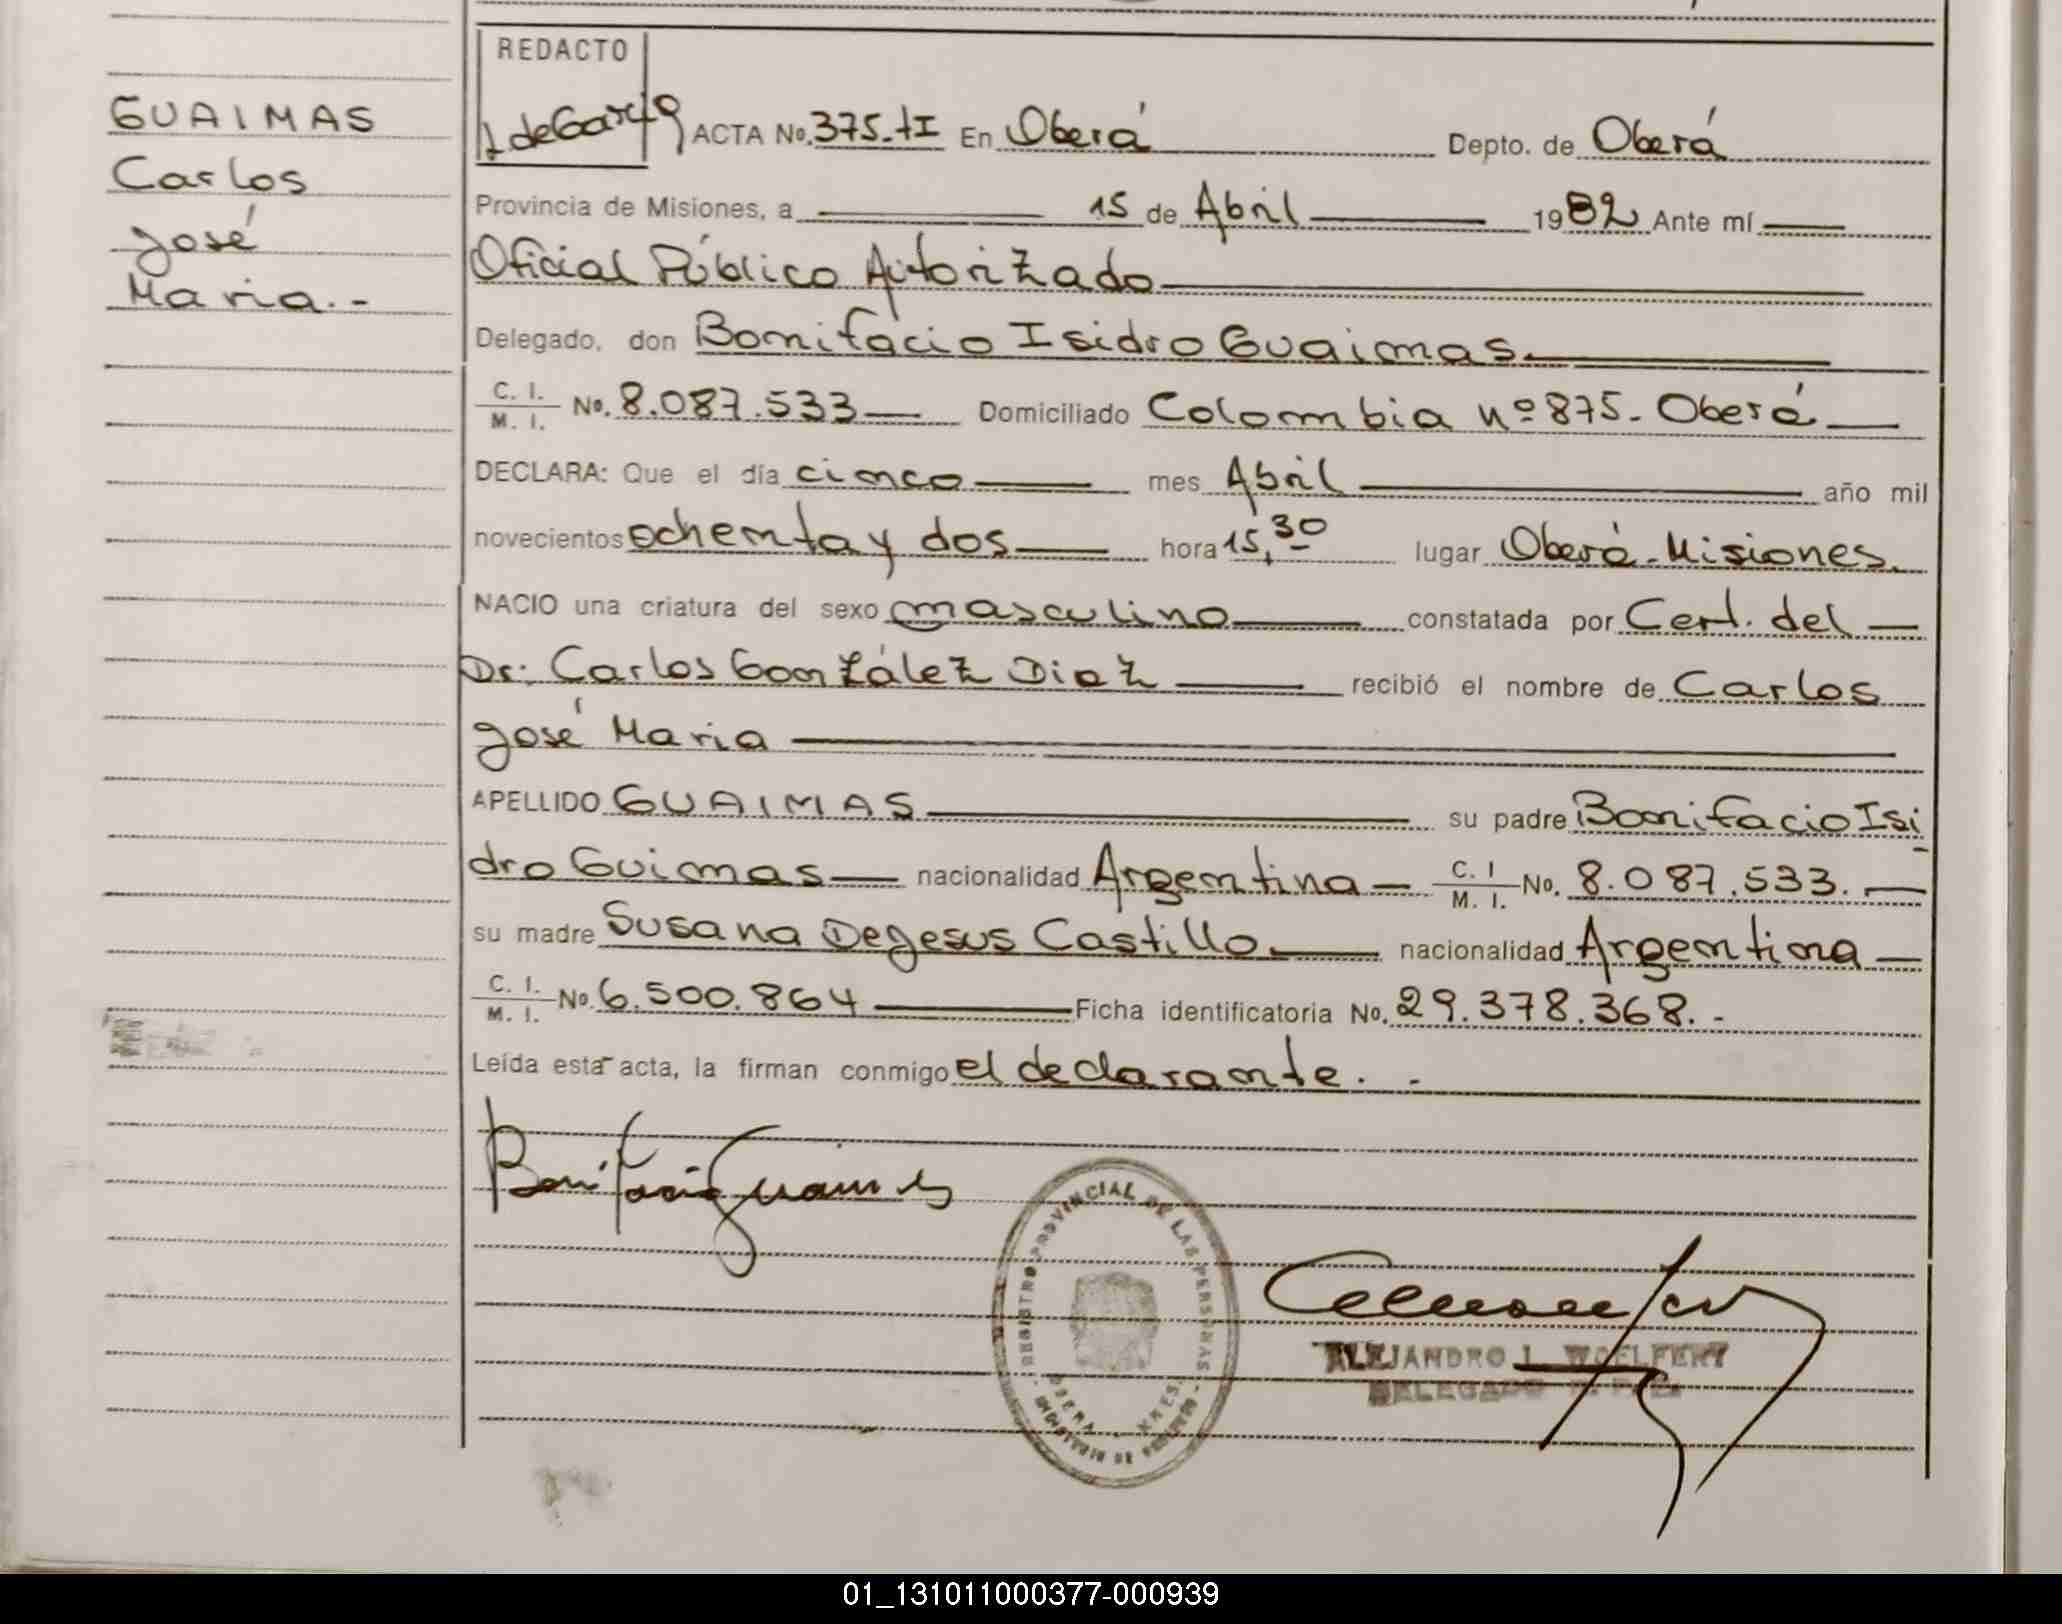 GUAIMAS
Carlos
José
Maria.-
REDACTO
ACTA No. 375.tI En Oberá Depto. de Oberá
Provincia de Misiones, a 15 de Abril 1982 Ante mí
Oficial Público Autorizado
Delegado, don Bonifacio Isidro Guaimas.
C. I. M. I. No. 8.087.533 Domiciliado Colombia nº 875- Oberá
DECLARA: Que el día cinco mes Abril año mil
novecientos ochenta y dos hora 15,30 lugar Oberá-Misiones.
NACIO una criatura del sexo masculino constatada por Cert. del
Dr: Carlos González Diaz recibió el nombre de Carlos
José Maria
APELLIDO GUAIMAS su padre Bonifacio Isi
dro Guimas nacionalidad Argentina C. I M. I. No. 8.087.533.
su madre Susana Dejesus Castillo. nacionalidad Argentina
C. I. M. I. No. 6.500.864 Ficha identificatoria No. 29.378.368.-
Leída esta acta, la firman conmigo el declarante. -
Bonifacio Guaimas
REGISTRO PROVINCIAL DE LAS PERSONAS
OBERA - MNES.
ALEJANDRO L. WOELFERT
DELEGADO
01_131011000377-000939